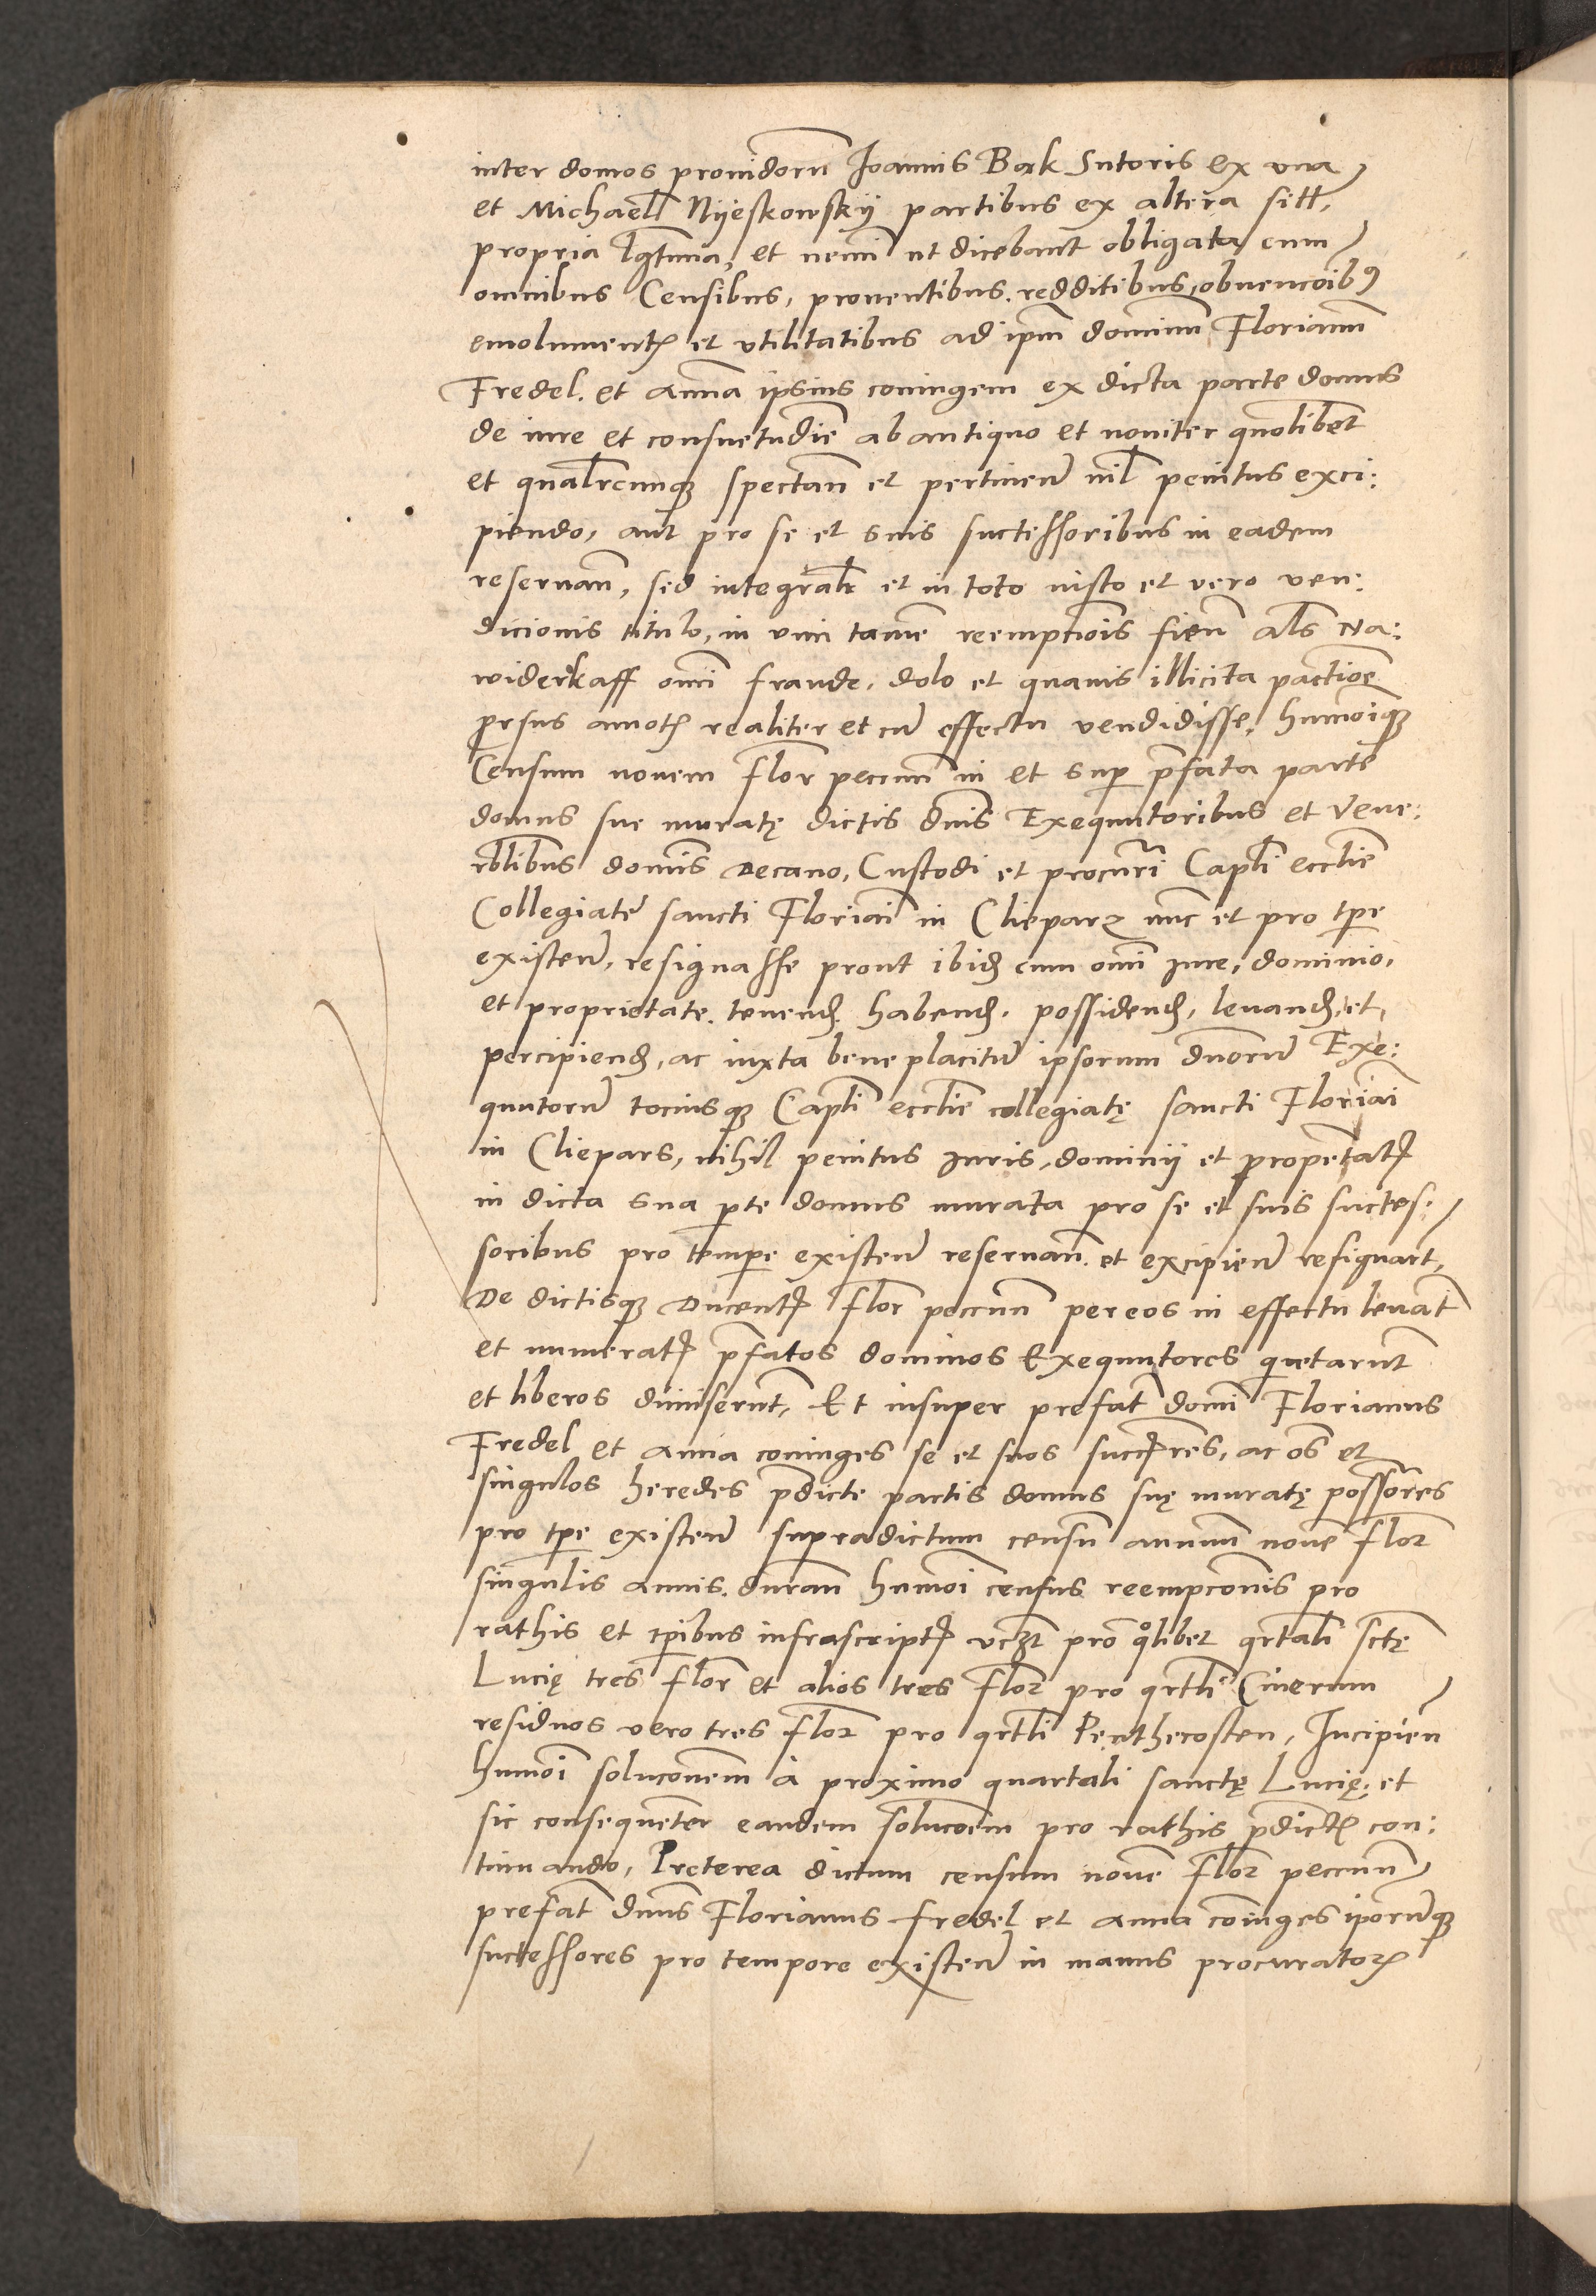 inter domos prouidoru Joannis Bak Sutoris ex una
et Michaell Nyeskowskij partibus ex altera sitt,
propria lgtma, et nemi ut dicebant obligata cum
omnibus Censibus, prouentibus. redditibus, obuencoibꝰ
emolumentꝭ et vtilitatibus ad ipm dominum Florianum
Fredel. et anna ipsius coniugem ex dicta parte domus
de iure et consuetudie ab antiquo et nouiter quolibet
et qualrcunqꝫ spectan et pertinen nil penitus exci:
piendo, aut pro se et suis successoribus in eadem
reseruan, sed integralr et in toto iusto et vero ven:
dicionis titulo, in vim tame reempcois fien als na:
widerkaff omi fraude, dolo et quauis illicita pactioe
prsus amotꝭ realiter et cu effectu vendidisse, humoiqꝫ
Censum nouem flor peccun in et sup pfata parte
domus sue muratę dictis dnis Exequutoribus et Vene:
rblibus domis Decano, Custodi et procuri Capli ecclie
Collegiate sancti Floriai in Clieparz nuc et pro tpe
existen, resignasse prout ibidꝫ cum omi iure, dominio,
et proprietate. tenendꝭ habendꝭ. possidendꝭ, leuandꝭ, et
percipiendꝭ, ac iuxta bene placitu ipsorum dnoru Exe:
quutoru tociusqꝫ Capli ecclie collegiatę sancti Floriai
in Cliepars, nihil penitus iuris, dominij et propetatꝭ
in dicta sua pte domus murata pro se et suis succes:
soribus pro tempe existen reseruan. et excipien resignart,
De dictisqꝫ Ducentꝭ flor peccun per eos in effectu leuat
et numeratꝭ pfatos dominos Exequutores quetarunt
et liberos dimiserunt, Et insuper prefat domi Florianus
Fredel et anna coniuges se et suos succꝭres, ac os et
singulos heredes pdicte partis domus suę muratę possores
pro tpe existen supradictum censu annuu noue flor
singulis annis. duran humoi census reempconis pro
rathis et tpibus infrascriptꝭ vczt pro qolibet qrtali sctę
Lucię tres flor et alios tres flor pro qrtli Cinerum
residuos vero tres flor pro qrtli Penthecosten, Incipien
humoi soluconem à proximo quartali sanctę Lucię, et
sic consequeter eandem solucoem pro rathis pdictꝭ con:
tinuando, Preterea dictum censum noue flor peccun
prefat dnus Florianus Fredel et anna coiuges iporuqꝫ
successores pro tempore existen in manus procuratorꝭ